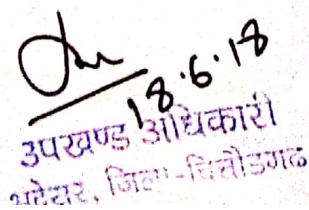 18.6.18
उपखण्ड अधिकारी
भदेसर, जिला-चित्तौड़गढ